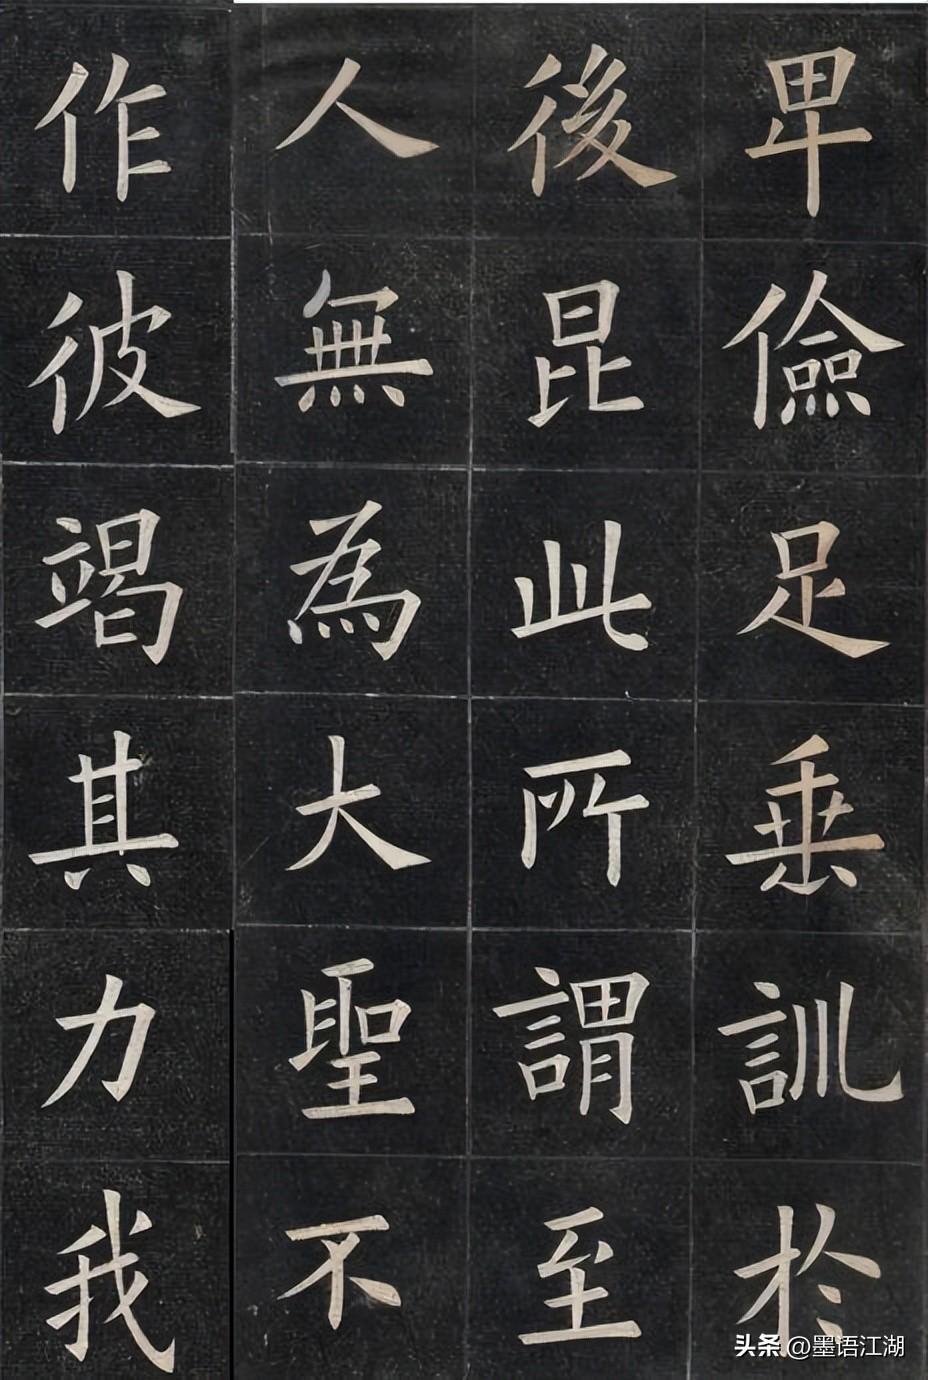 卑儉足垂訓於
後昆此所謂至
人無為大聖不
作彼竭其力我
头条 @墨语江湖